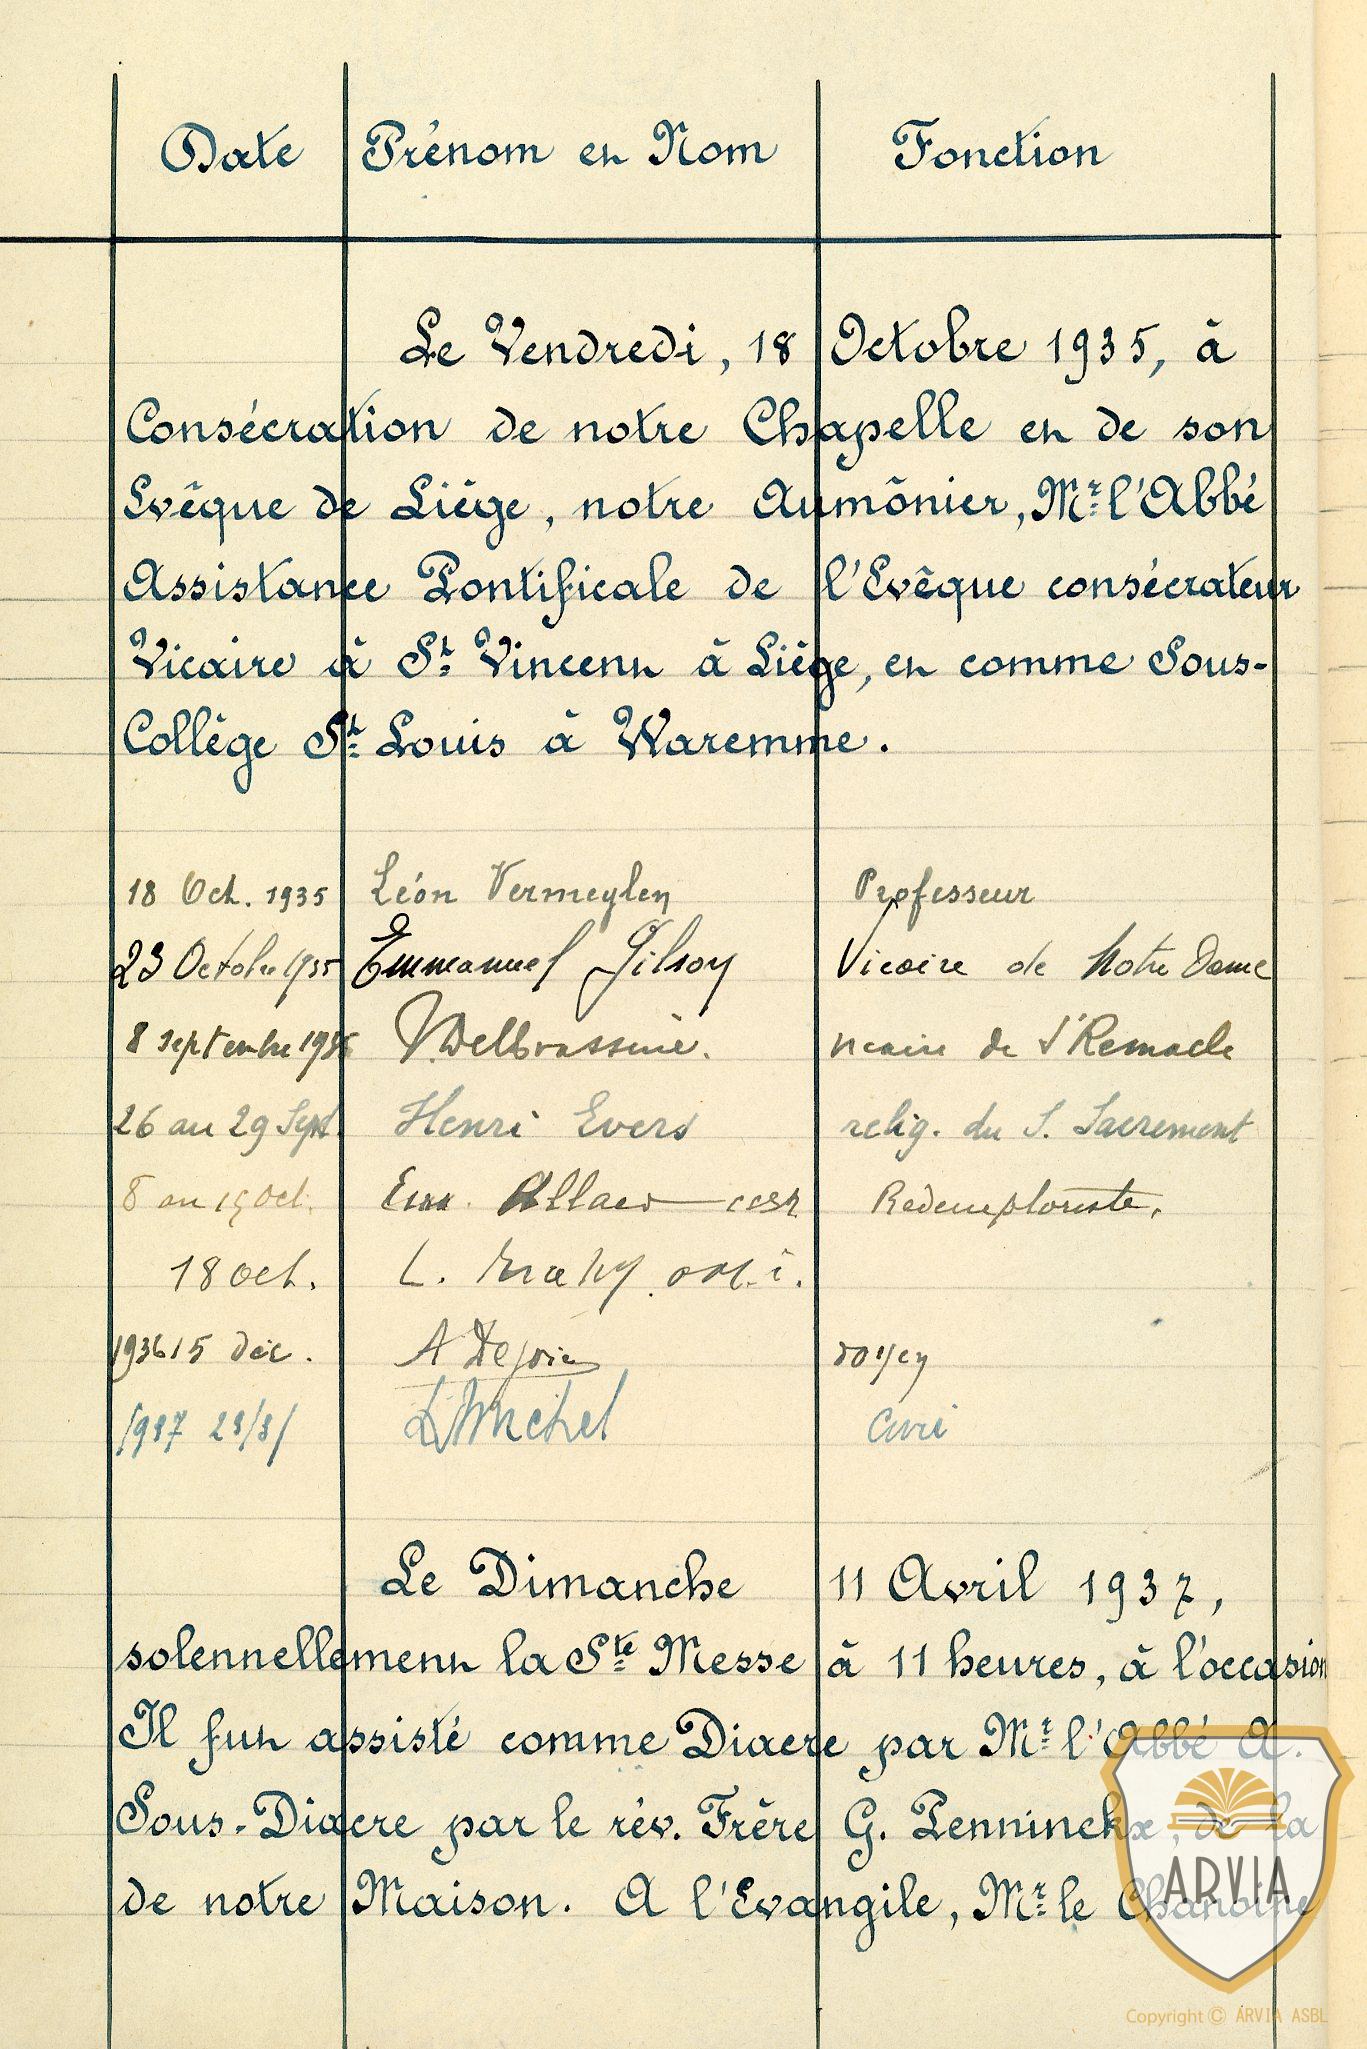 Date Prénom et Nom Fonction
Le Vendredi, 18 Octobre 1935, à
Consécration de notre Chapelle et de son
Evêque de Liége, notre Aumônier, Mr l'Abbé
Assistance Pontificale de l'Evêque consécrateur
Vicaire à St Vincent à Liége, et comme Sous-
Collège St Louis à Waremme.
18 Oct. 1935 Léon Vermeylen Professeur
23 Octobre 1935 Emmanuel Gilson Vicaire de Notre Dame
8 septembre 1936 Delbrassine. vicaire de St Remacle
26 au 29 Sept. Henri Evers relig. du S. Sacrement
8 au 15 Oct. Em. Allaer cssr Redemptoriste.
18 oct. L. o.m.i.
1936 15 déc. A doyen
1937 23/3/ L Michel Curé
Le Dimanche 11 Avril 1937,
solennellement la Ste Messe à 11 heures, à l'occasion
Il fut assisté comme Diacre par Mr l'Abbé A.
Sous-Diacre par le rév. Frère G. Penninckx, de la
de notre Maison. A l'Evangile, Mr le Chanoine
ARVIA
Copyright © ARVIA ASBL